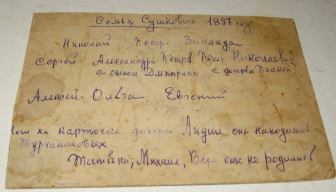 Семья Сушковых 1897 год
Николай Петр. Зинаида
Сергей Александра Петров. Петр Николаевич
с сыном Дмитрием с дочерью
Алексей Ольга Евгений
Нет на карточке дочери Лидии она находилась
Турчаниковых
Татьяна, Михаил, Вера еще не родились